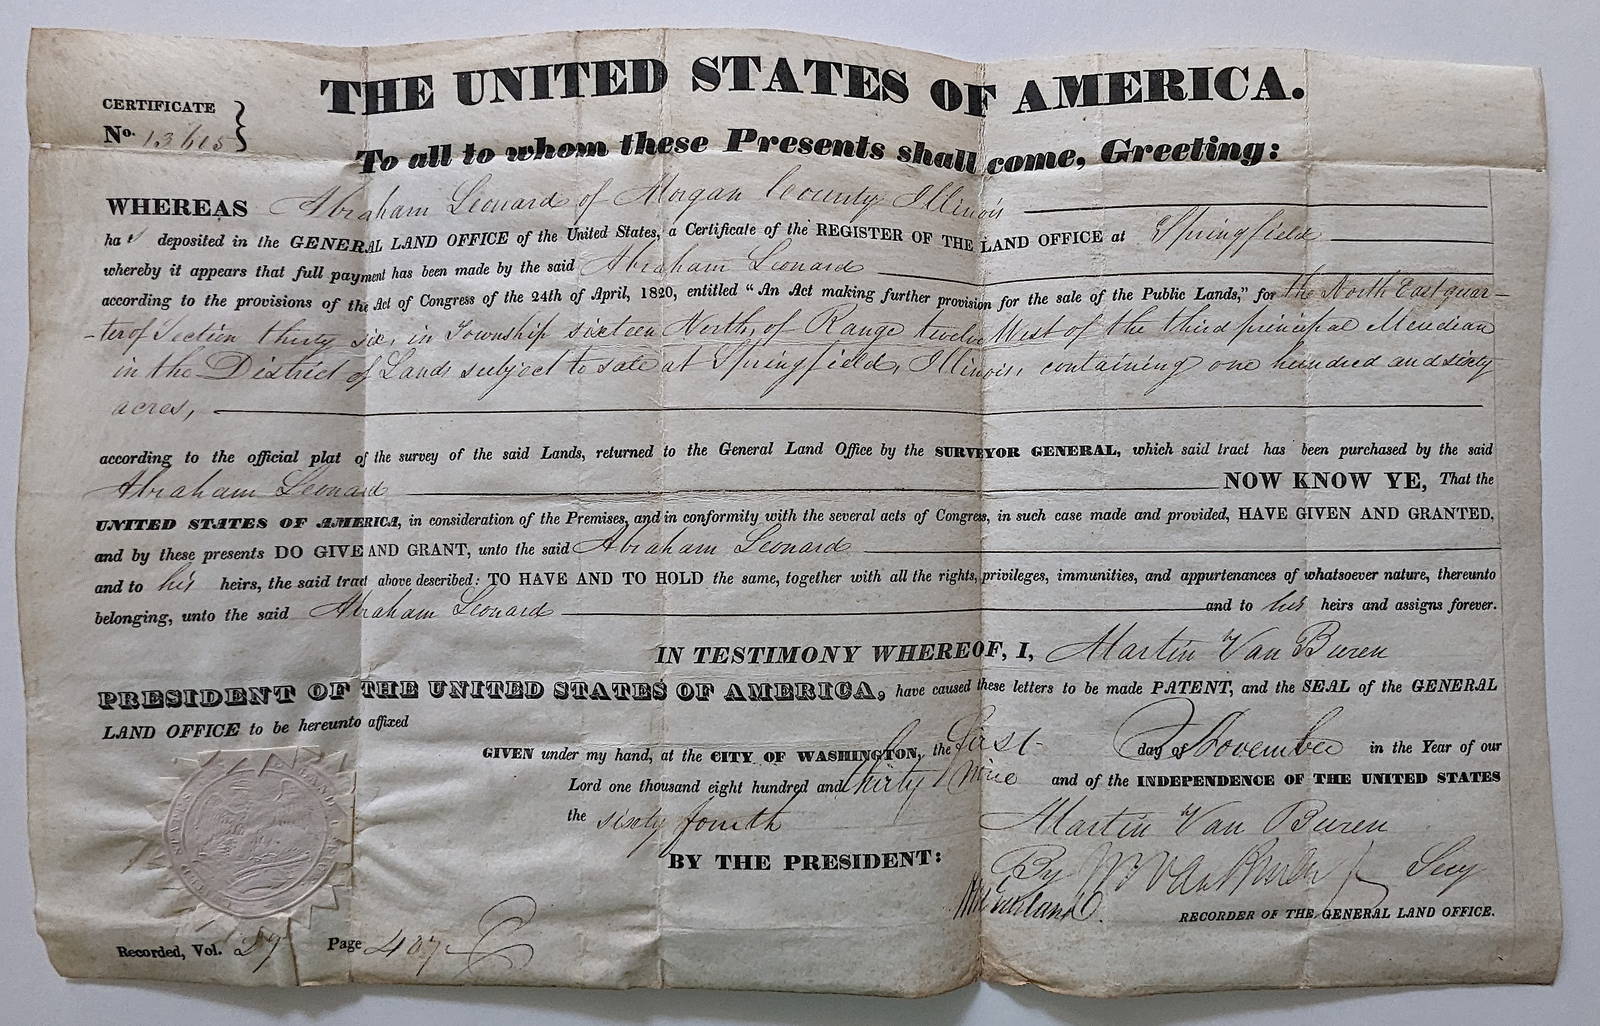 THE UNITED STATES OF AMERICA.
CERTIFICATE
No. 13615
To all to whom these Presents shall come, Greeting:
WHEREAS Abraham Leonard of Morgan County Illinois
has deposited in the GENERAL LAND OFFICE of the United States, a Certificate of the REGISTER OF THE LAND OFFICE at Springfield
whereby it appears that full payment has been made by the said Abraham Leonard
according to the provisions of the Act of Congress of the 24th of April, 1820, entitled "An Act making further provision for the sale of the Public Lands," for the North East quar-
-ter of Section thirty six, in Township sixteen North, of Range twelve West of the third principal Meridian
in the District of Lands subject to sale at Springfield, Illinois, containing one hundred and sixty
acres,
according to the official plat of the survey of the said Lands, returned to the General Land Office by the SURVEYOR GENERAL, which said tract has been purchased by the said
Abraham Leonard NOW KNOW YE, That the
UNITED STATES OF AMERICA, in consideration of the Premises, and in conformity with the several acts of Congress, in such case made and provided, HAVE GIVEN AND GRANTED,
and by these presents DO GIVE AND GRANT, unto the said Abraham Leonard
and to his heirs, the said tract above described: TO HAVE AND TO HOLD the same, together with all the rights, privileges, immunities, and appurtenances of whatsoever nature, thereunto
belonging, unto the said Abraham Leonard and to his heirs and assigns forever.
IN TESTIMONY WHEREOF, I, Martin Van Buren
PRESIDENT OF THE UNITED STATES OF AMERICA, have caused these letters to be made PATENT, and the SEAL of the GENERAL
LAND OFFICE to be hereunto affixed
GIVEN under my hand, at the CITY OF WASHINGTON, the first day of November in the Year of our
Lord one thousand eight hundred and thirty nine and of the INDEPENDENCE OF THE UNITED STATES
the sixty fourth
Martin Van Buren
BY THE PRESIDENT:
By Van Buren Secy
RECORDER OF THE GENERAL LAND OFFICE.
Recorded, Vol. 27 Page 407